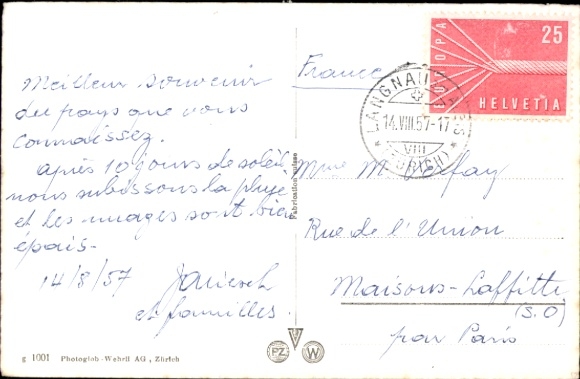 Meilleur souvenir
du pays que vous
connaissez.
après 10 jours de soleil
nous subissons la pluie
et les nuages sont bien
épais-
14/8/57
et familles.
g 1001 Photoglob-Wehrli AG, Zürich
Fabrication suisse
PZ W
EUROPA
25
HELVETIA
LANGNAU
14.VIII.57-17
VIII
(ZÜRICH)
France
Mme M.
Rue de l'Union
Maisons-Laffitte
(S.O)
par Paris